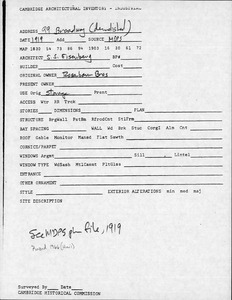 CAMBRIDGE ARCHITECTURAL INVENTORY - INDUSTRIAL
ADDRESS 99 Broadway (demolished)
DATE 1919 Add SOURCE MDPS
MAP 1830 54 73 86 94 1903 16 30 61 72
ARCHITECT S.S. Eisenberg BP#
BUILDER Cost
ORIGINAL OWNER Rosenbaum Bros
PRESENT OWNER
USE Orig Storage Prsnt
ACCESS Wtr RR Trck
STORIES DIMENSIONS PLAN
STRUCTURE BrgWall PstBm RfrcdCnt StlFrm
BAY SPACING WALL Wd Brk Stuc CorgI Alm Cnt
ROOF Gable Monitor Mansd Flat Sawth
CORNICE/PARPET
WINDOWS Argmt Sill Lintel
WINDOW TYPE WdSash MtlCasmt PltGlss
ENTRANCE
OTHER ORNAMENT
STYLE EXTERIOR ALTERATIONS min med maj
SITE DESCRIPTION
See MDPS plan file, 1919
Surveyed By Date
CAMBRIDGE HISTORICAL COMMISSION